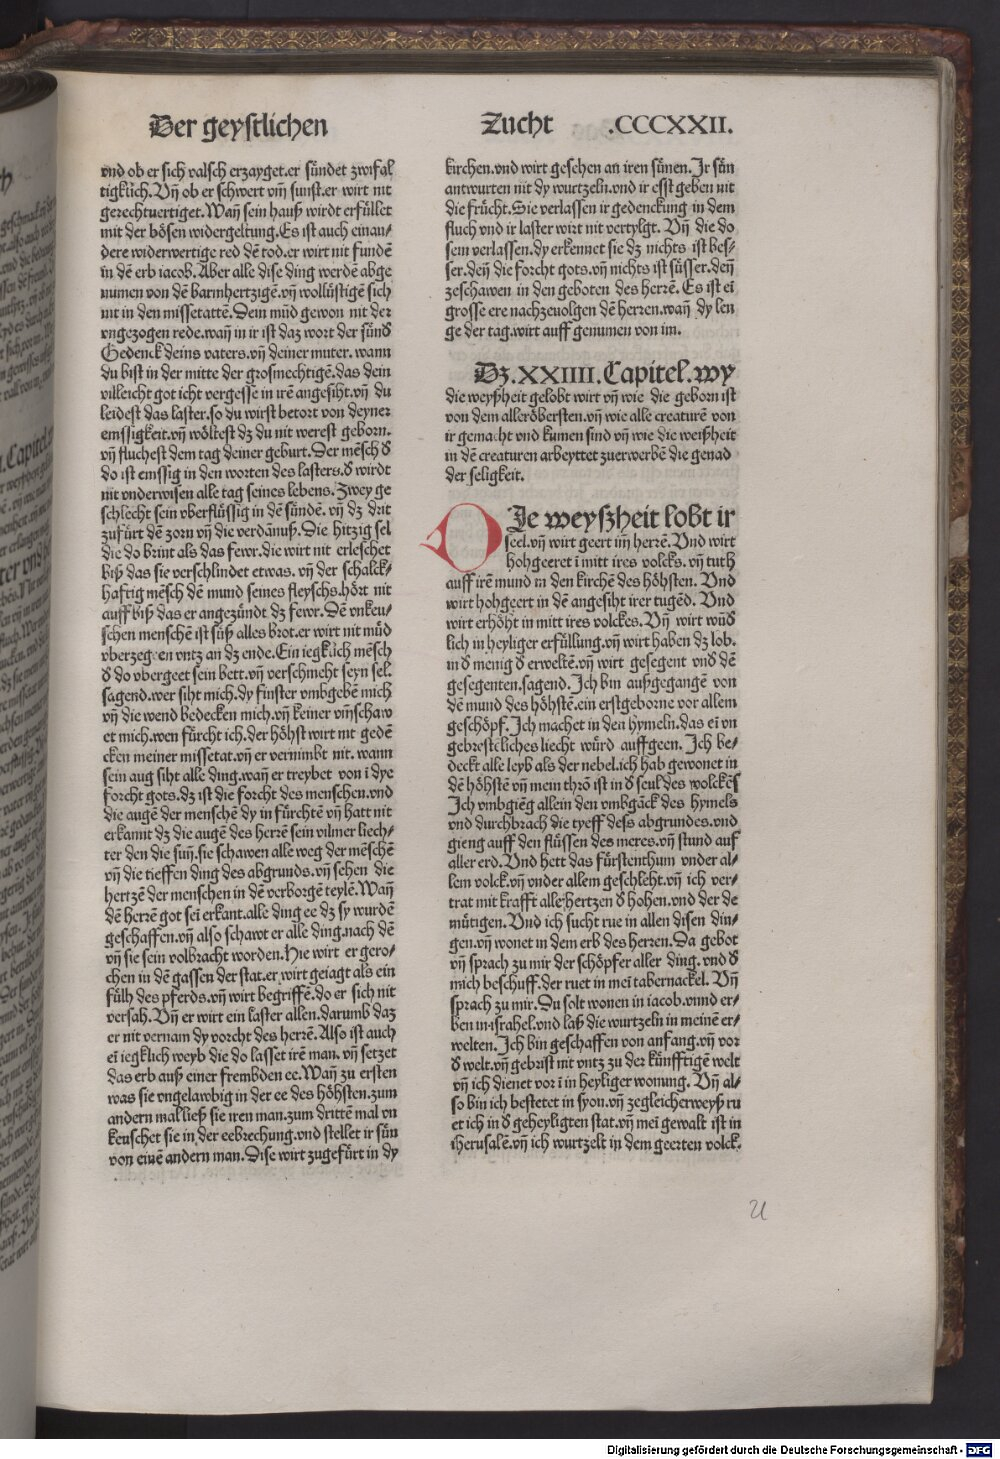 Der geystlichen
Zucht .CCCXXII.
vnd ob er sich valsch erzayget.er sündet zwifal
tigklich.Vñ ob er schwert vm̃ sunst.er wirt nit
gerechtuertiget.Wañ sein hauß wirdt erfüllet
mit der bösen widergeltung.Es ist auch ein an/
dere widerwertige red dē tod.er wirt nit fundē
in dē erb iacob.Aber alle dise ding werdē abge
numen von dē barmhertzigē.vñ wollüstigē sich
nit in den missetattē.Dein mūd gewon nit der
vngezogen rede.wañ in ir ist daz wort der sünd
Gedenck deins vaters.vñ deiner muter. wann
du bist in der mitte der grosmechtigē.das dein
villeicht got icht vergesse in irē angesiht.vñ du
leidest das laster.so du wirst betort von deyner
emssigkeit.vñ wöltest dz du nit werest geborn.
vñ fluchest dem tag deiner geburt.Der mēsch d
do ist emssig in den worten des lasters.d wirdt
nit vnderwisen alle tag seines lebens.Zwey ge
schlecht sein vberflüssig in dē sündē. vñ dz drit
zufürt dē zorn vñ die verdānuß.Die hitzig sel
die do brint als das fewr.die wirt nit erleschet
biß das sie verschlindet etwas. vñ der schalck/
haftig mēsch dē mund seines fleyschs.hört nit
auff biß das er angezündt dz fewr.Dē vnkeu/
schen menschē ist süß alles brot.er wirt nit müd
vberzegen vntz an dz ende.Ein iegklich mēsch
d do vbergeet sein bett.vñ verschmeht seyn sel.
sagend.wer siht mich.dy finster vmbgebē mich
vñ die wend bedecken mich.vñ keiner vm̃schaw
et mich.wen fürcht ich.der höhst wirt nit gedē
cken meiner missetat.vñ er vernimbt nit. wann
sein aug siht alle ding.wañ er treybet von ī dye
forcht gots.dz ist die forcht des menschen.vnd
die augē der menschē dy in fürchtē vñ hatt nit
erkannt dz die augē des herrē sein vilmer liech/
ter den die suñ.sie schawen alle weg der mēschē
vñ die tieffen ding des abgrunds.vñ sehen die
hertzē der menschen in dē verborgē teylē.Wañ
dē herrē got sei erkant.alle ding ee dz sy wurdē
geschaffen.vñ also schawt er alle ding.nach dē
vñ sie sein volbracht worden.Hie wirt er gero/
chen in dē gassen der stat.er wirt geiagt als ein
fülh des pferds.vñ wirt begriffē.do er sich nit
versah.Vñ er wirt ein laster allen.darumb daz
er nit vernam dy vorcht des herrē.Also ist auch
eī iegklich weyb die do lasset irē man. vñ setzet
das erb auß einer frembden ee.Wañ zu ersten
was sie vngelawbig in der ee des höhsten.zum
andern mal ließ sie iren man.zum drittē mal vn
keuschet sie in der eebrechung.vnd stellet ir sün
von einē andern man.Dise wirt zugefürt in dy
kirchen.vnd wirt gesehen an iren sünen.Ir sün
antwurten nit dy wurtzeln.vnd ir esst geben nit
die frücht.Sie verlassen ir gedenckung in dem
fluch vnd ir laster wirt nit vertylgt. Vñ die do
sein verlassen.dy erkennet sie dz nichts ist bes/
ser.deñ die forcht gots.vñ nichts ist süsser.deñ
zeschawen in den geboten des herrē. Es ist eī
grosse ere nachzeuolgen dē herren.wañ dy len
ge der tag.wirt auff genumen von im.
Dz.XXIIII.Capitel.wy
die weyßheit gelobt wirt vñ wie die geborn ist
von dem alleröbersten.vñ wie alle creaturē von
ir gemacht vnd kumen sind vñ wie die weißheit
in dē creaturen arbeyttet zuerwerbē die genad
der seligkeit.
DIe weyßheit lobt ir
seel.vñ wirt geert im̃ herrē.Vnd wirt
hohgeeret ī mitt ires volcks. vñ tuth
auff irē mund in den kirchē des höhsten. Vnd
wirt hohgeert in dē angesiht irer tugēd. Vnd
wirt erhöht in mitt ires volckes. Vñ wirt wūd
lich in heyliger erfüllung.vñ wirt haben dz lob.
in d menig d erweltē.vñ wirt gesegent vnd dē
gesegenten.sagend.Ich bin außgegangē von
dē mund des höhstē.ein erstgeborne vor allem
geschöpf.Ich machet in den hymeln.das eī vn
gebrestēliches liecht würd auffgeen. Ich be/
deckt alle leyb als der nebel.ich hab gewonet in
dē höhstē vñ mein thrō ist in d seul des wolckēs
Ich vmbgieng allein den vmbgāck des hymels
vnd durchbrach die tyeff dess abgrundes.vnd
gieng auff den flüssen des meres.vñ stund auf
aller erd.Vnd hett das fürstenthum vnder al/
lem volck.vñ vnder allem geschleht.vñ ich ver/
trat mit krafft alle hertzen d hohen.vnd der de
mütigen.Vnd ich sucht rue in allen disen din/
gen.vñ wonet in dem erb des herren.Da gebot
vñ sprach zu mir der schöpfer aller ding.vnd d
mich beschuff.der ruet in mei tabernackel. Vñ
sprach zu mir.Du solt wonen in iacob.vnnd er/
ben in israhel.vnd laß die wurtzeln in meinē er/
welten.Ich bin geschaffen von anfang.vñ vor
d welt.vñ gebrist nit vntz zu der künfftigē welt
vñ ich dienet vor ī in heyliger wonung. Vñ al/
so bin ich bestetet in syon.vñ zegleicherweyß ru
et ich in d geheyligten stat.vñ mei gewalt ist in
iherusalē.vñ ich wurtzelt in dem geerten volck.
Digitalisierung gefördert durch die Deutsche Forschungsgemeinschaft - DFG